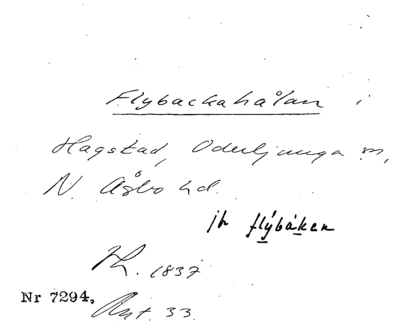 Flybackahålan i
Hagstad, Oderljunga sn,
N. Åsbo hd.
jfr flýbáken
Kh. 1837
Nr 7294, Ant. 33.